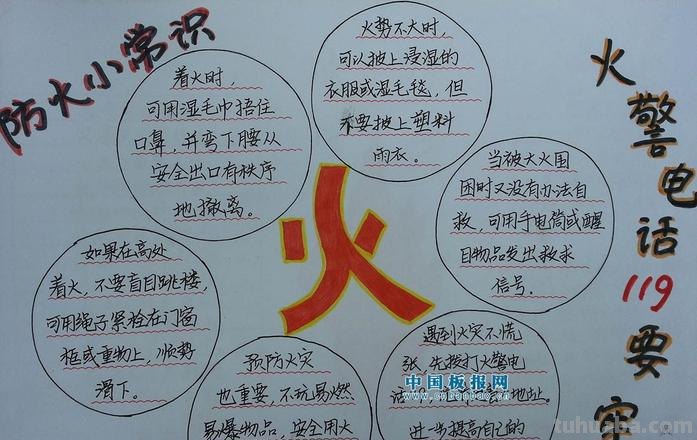 防火小常识
着火时,
可用湿毛巾捂住
口鼻,并弯下腰从
安全出口有秩序
地撤离。
火势不大时,
可以披上浸湿的
衣服或湿毛毯,但
不要披上塑料
雨衣。
当被大火围
困时又没有办法自
救,可用手电筒或醒
目物品发出救求
信号。
如果在高处
着火,不要盲目跳楼,
可用绳子紧栓在门窗
框或重物上,顺势
滑下。
火
预防火灾
也重要,不玩易燃
易爆物品,安全用火
遇到火灾不慌
张,先拨打火警电
地址。
进步提高自己的
火警电话119要牢
中国板报网
www.cnbanbao.cn
tuhuaba.com